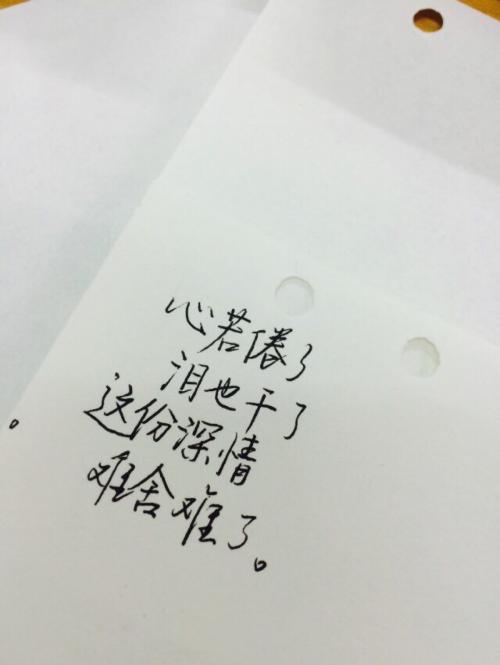 心若倦了
泪也干了
这份深情
难舍难了。